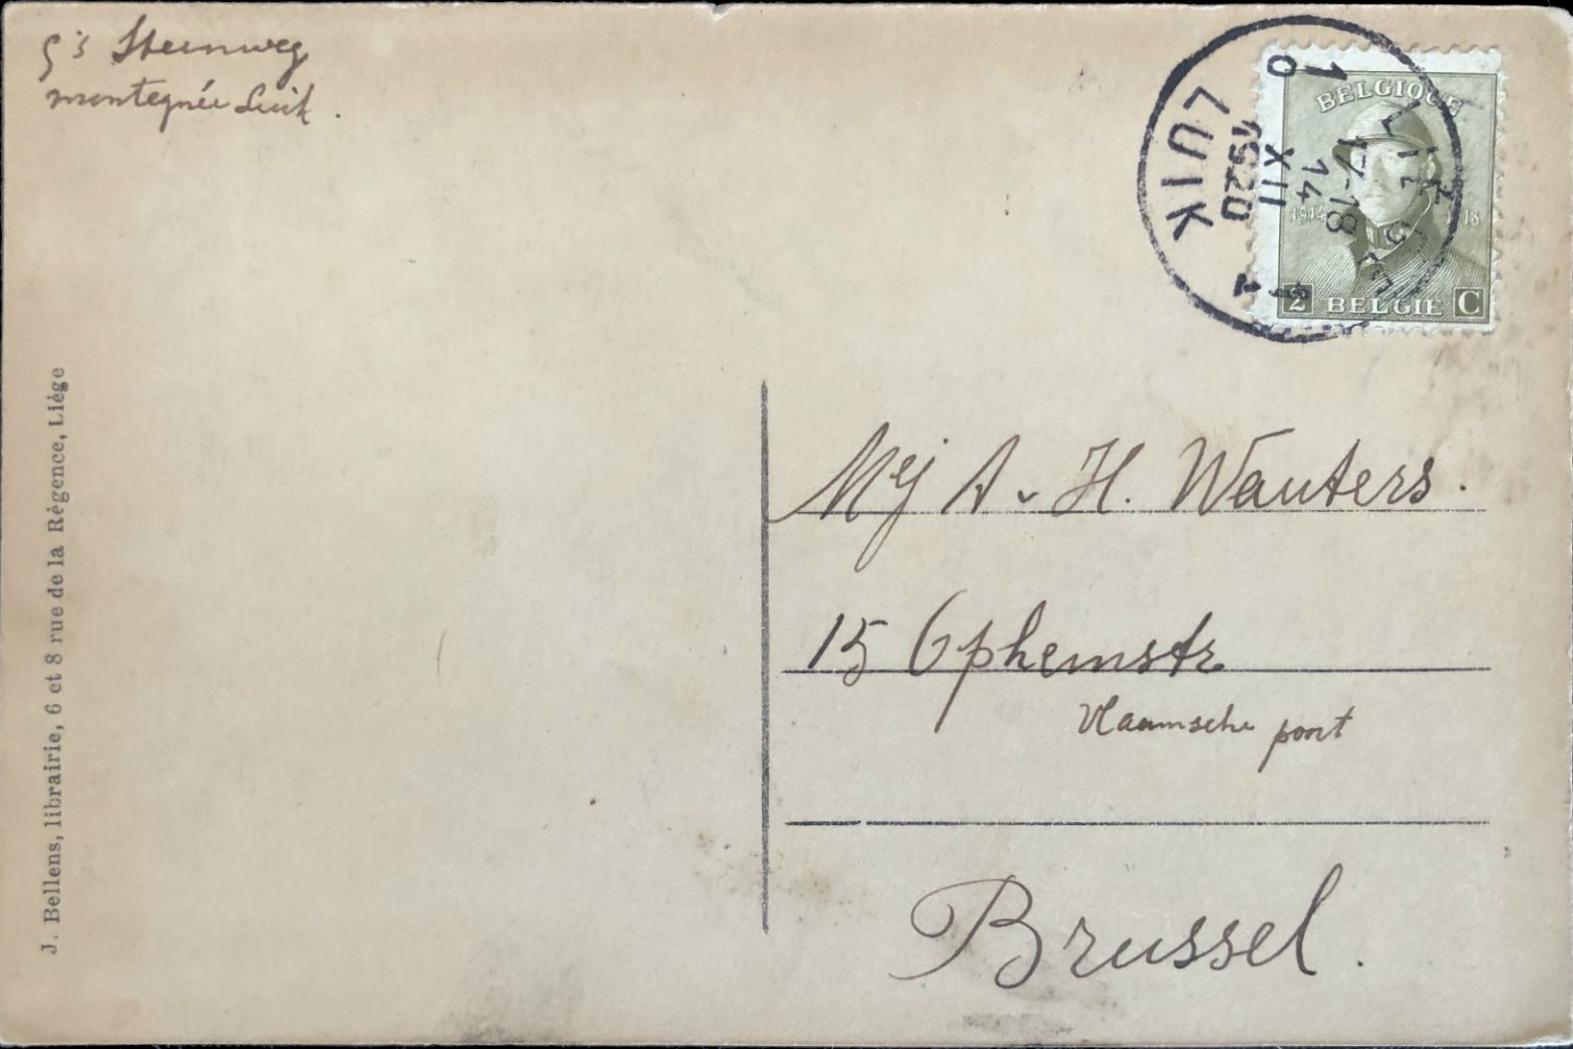 G's Steenweg
montegnée Luik.
BELGIQUE
1914 1918
2 BELGIË C
LUIK
1920
XII
14
17-18
1
J. Bellens, librairie, 6 et 8 rue de la Régence, Liège
Mej A. v. H. Wauters.
15 Ophemstr
Vlaamsche poort
Brussel.